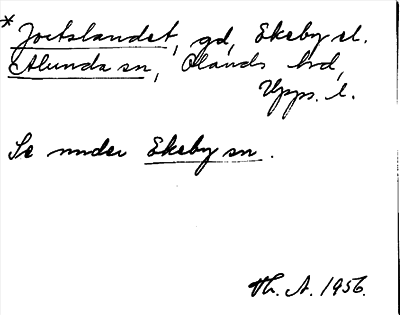 * Joetslandet, gd, Ekeby el.
Alunda sn, Olands hd,
Upps. l.
Se under Ekeby sn.
Th. A. 1956.